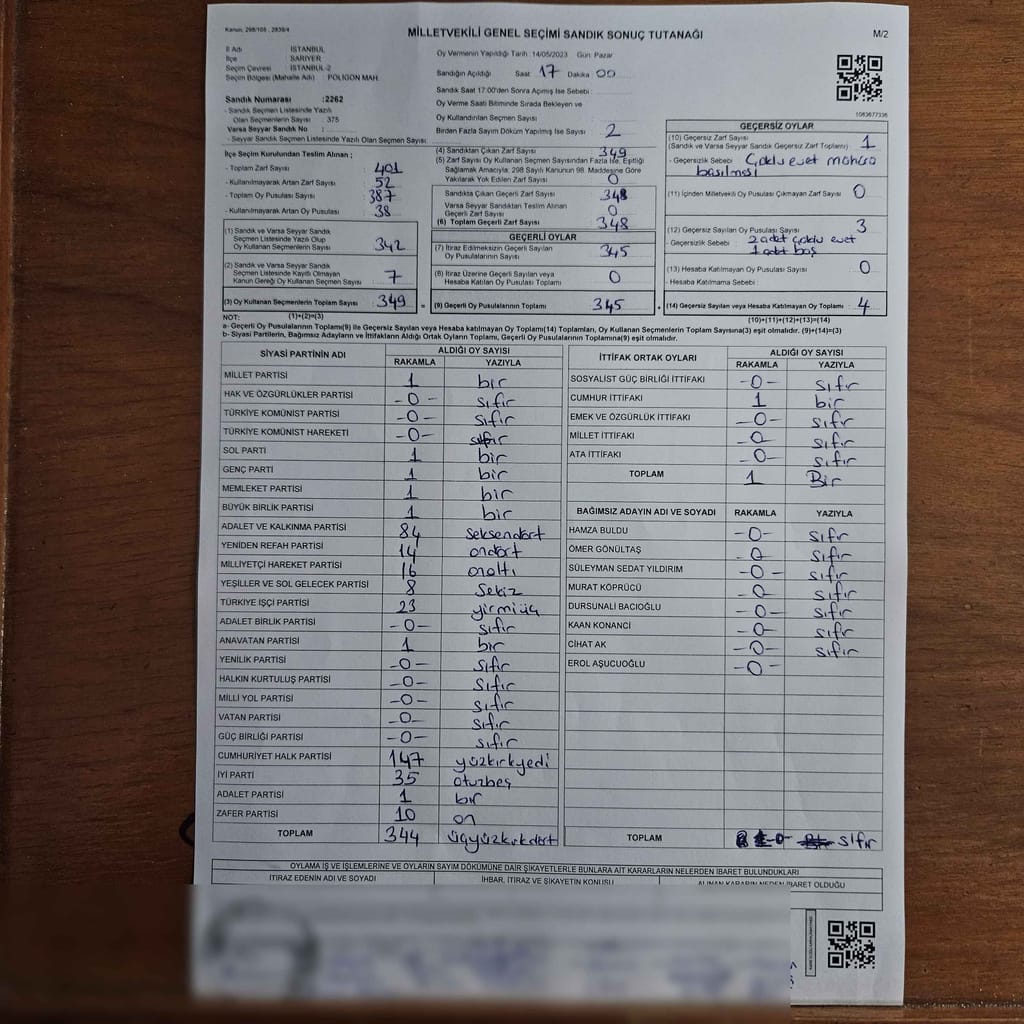 Kanun, 298/105 ; 2839/4
MİLLETVEKİLİ GENEL SEÇİMİ SANDIK SONUÇ TUTANAĞI
M/2
İl Adı : İSTANBUL
İlçe : SARIYER
Seçim Çevresi : İSTANBUL-2
Seçim Bölgesi (Mahalle Adı) : POLİGON MAH.
Oy Vermenin Yapıldığı Tarih : 14/05/2023 Gün: Pazar
Sandığın Açıldığı Saat: 17 Dakika 00
Sandık Saat 17:00'den Sonra Açılmış İse Sebebi :
Oy Verme Saati Bitiminde Sırada Bekleyen ve
Oy Kullandırılan Seçmen Sayısı
Birden Fazla Sayım Döküm Yapılmış İse Sayısı 2
1083677336
Sandık Numarası :2262
- Sandık Seçmen Listesinde Yazılı
Olan Seçmenlerin Sayısı : 375
Varsa Seyyar Sandık No :
- Seyyar Sandık Seçmen Listesinde Yazılı Olan Seçmen Sayısı:
İlçe Seçim Kurulundan Teslim Alınan ;
- Toplam Zarf Sayısı 401
- Kullanılmayarak Artan Zarf Sayısı 52
- Toplam Oy Pusulası Sayısı 387
- Kullanılmayarak Artan Oy Pusulası 38
(1) Sandık ve Varsa Seyyar Sandık
Seçmen Listesinde Yazılı Olup
Oy Kullanan Seçmenlerin Sayısı 342
(2) Sandık ve Varsa Seyyar Sandık
Seçmen Listesinde Kayıtlı Olmayan
Kanun Gereği Oy Kullanan Seçmen Sayısı 7
(3) Oy Kullanan Seçmenlerin Toplam Sayısı 349 =
(4) Sandıktan Çıkan Zarf Sayısı 349
(5) Zarf Sayısı Oy Kullanan Seçmen Sayısından Fazla İse, Eşitliği
Sağlamak Amacıyla; 298 Sayılı Kanunun 98. Maddesine Göre
Yakılarak Yok Edilen Zarf Sayısı 0
Sandıkta Çıkan Geçerli Zarf Sayısı 348
Varsa Seyyar Sandıktan Teslim Alınan
Geçerli Zarf Sayısı 0
(6) Toplam Geçerli Zarf Sayısı 348
GEÇERLİ OYLAR
(7) İtiraz Edilmeksizin Geçerli Sayılan
Oy Pusulalarının Sayısı 345
(8) İtiraz Üzerine Geçerli Sayılan veya
Hesaba Katılan Oy Pusulası Toplamı 0
(9) Geçerli Oy Pusulalarının Toplamı 345 +
GEÇERSİZ OYLAR
(10) Geçersiz Zarf Sayısı 1
(Sandık ve Varsa Seyyar Sandık Geçersiz Zarf Toplamı)
- Geçersizlik Sebebi : Çoklu evet mührü
basılması
(11) İçinden Milletvekili Oy Pusulası Çıkmayan Zarf Sayısı 0
(12) Geçersiz Sayılan Oy Pusulası Sayısı 3
- Geçersizlik Sebebi : 2 adet çoklu evet
1 adet boş
(13) Hesaba Katılmayan Oy Pusulası Sayısı 0
- Hesaba Katılmama Sebebi :
(14) Geçersiz Sayılan veya Hesaba Katılmayan Oy Toplamı : 4
NOT: (1)+(2)=(3) (10)+(11)+(12)+(13)=(14)
a- Geçerli Oy Pusulalarının Toplamı(9) ile Geçersiz Sayılan veya Hesaba katılmayan Oy Toplamı(14) Toplamları, Oy Kullanan Seçmenlerin Toplam Sayısına(3) eşit olmalıdır. (9)+(14)=(3)
b- Siyasi Partilerin, Bağımsız Adayların ve İttifakların Aldığı Oy Ortak Oyların Toplamı, Geçerli Oy Pusulalarının Toplamına(9) eşit olmalıdır.
SİYASİ PARTİNİN ADI ALDIĞI OY SAYISI
RAKAMLA YAZIYLA
MİLLET PARTİSİ 1 bir
HAK VE ÖZGÜRLÜKLER PARTİSİ -0- sıfır
TÜRKİYE KOMÜNİST PARTİSİ -0- sıfır
TÜRKİYE KOMÜNİST HAREKETİ -0- sıfır
SOL PARTİ 1 bir
GENÇ PARTİ 1 bir
MEMLEKET PARTİSİ 1 bir
BÜYÜK BİRLİK PARTİSİ 1 bir
ADALET VE KALKINMA PARTİSİ 84 seksendört
YENİDEN REFAH PARTİSİ 14 ondört
MİLLİYETÇİ HAREKET PARTİSİ 16 onaltı
YEŞİLLER VE SOL GELECEK PARTİSİ 8 Sekiz
TÜRKİYE İŞÇİ PARTİSİ 23 yirmiüç
ADALET BİRLİK PARTİSİ -0- sıfır
ANAVATAN PARTİSİ 1 bir
YENİLİK PARTİSİ -0- sıfır
HALKIN KURTULUŞ PARTİSİ -0- sıfır
MİLLİ YOL PARTİSİ -0- sıfır
VATAN PARTİSİ -0- sıfır
GÜÇ BİRLİĞİ PARTİSİ -0- sıfır
CUMHURİYET HALK PARTİSİ 147 yüzkırkyedi
İYİ PARTİ 35 otuzbeş
ADALET PARTİSİ 1 bir
ZAFER PARTİSİ 10 on
TOPLAM 344 üçyüzkırkdört
İTTİFAK ORTAK OYLARI ALDIĞI OY SAYISI
RAKAMLA YAZIYLA
SOSYALİST GÜÇ BİRLİĞİ İTTİFAKI -0- sıfır
CUMHUR İTTİFAKI 1 bir
EMEK VE ÖZGÜRLÜK İTTİFAKI -0- sıfır
MİLLET İTTİFAKI -0- sıfır
ATA İTTİFAKI -0- sıfır
TOPLAM 1 Bir
BAĞIMSIZ ADAYIN ADI VE SOYADI RAKAMLA YAZIYLA
HAMZA BULDU -0- sıfır
ÖMER GÖNÜLTAŞ -0- sıfır
SÜLEYMAN SEDAT YILDIRIM -0- sıfır
MURAT KÖPRÜCÜ -0- sıfır
DURSUNALİ BACIOĞLU -0- sıfır
KAAN KONANCİ -0- sıfır
CİHAT AK -0- sıfır
EROL AŞUCUOĞLU -0-
TOPLAM -0- sıfır
OYLAMA İŞ VE İŞLEMLERİNE VE OYLARIN SAYIM DÖKÜMÜNE DAİR ŞİKAYETLERLE BUNLARA AİT KARARLARIN NELERDEN İBARET BULUNDUKLARI
İTİRAZ EDENİN ADI VE SOYADI İHBAR, İTİRAZ VE ŞİKAYETİN KONUSU ALINAN KARARIN NEDEN İBARET OLDUĞU